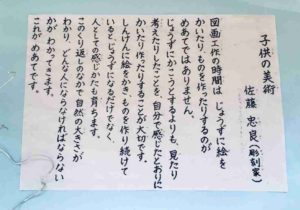 子供の美術
佐藤 忠良(彫刻家)
図画工作の時間は じょうずに絵を
かいたり、ものを作ったりするのが
めあてではありません。
じょうずにかこうとするよりも、見たり
考えたりしたことを、自分で感じたとおりに
かいたり、作ったりすることが大切です。
しんけんに絵をかき、ものを作り続けて
いると、じょうずになるだけでなく、
人としての感じかたも育ちます。
このくり返しのなかで自然の大きさが
わかり、どんな人にならなければならない
かが わかってきます。
これが めあてです。